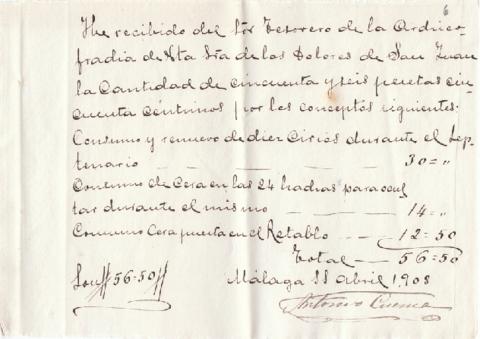 6
He recibido del Sor Tesorero de la Archico-
fradia de Nta Sra de los Dolores de San Juan
la Cantidad de cincuenta y seis pesetas cin-
cuenta céntimos por los conceptos siguientes.
Consumo y renuevo de diez Cirios durante el Sep-
tenario — — — 30 = "
Consumo de Cera en las 24 para ocul
tar durante el mismo — — — 14 = "
Consumo Cera puesta en el Retablo — 12 = 50
Total — 56 = 50
Son 56-50 Málaga 11 Abril 1908
Antonio Cuenca